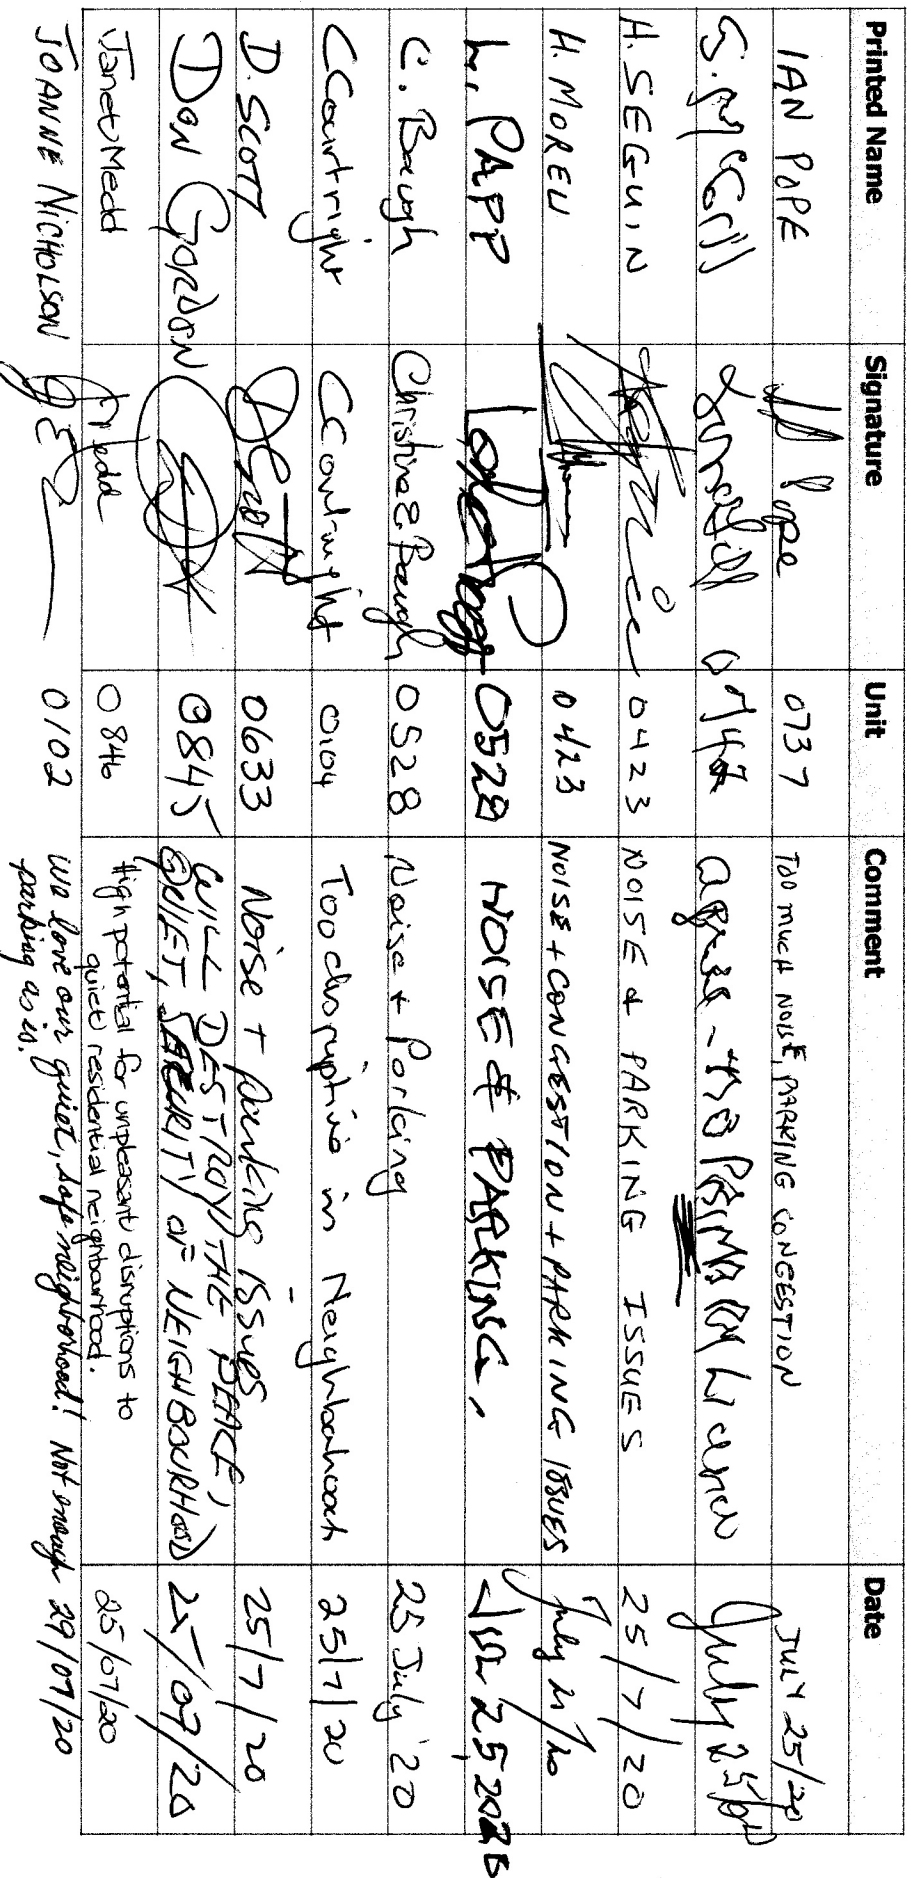 Printed Name Signature Unit Comment Date
IAN POPE Pope 0737 TOO MUCH NOISE, PARKING CONGESTION JULY 25/20
agree - no July 25/20
H. SEGUIN 0423 NOISE & PARKING ISSUES 25/7/20
H. MOREU 0423 NOISE + CONGESTION + PARKING ISSUES July
L. PAPP 0528 NOISE & PARKING.
C. Baugh Christine Baugh 0528 Noise + Parking 25 July '20
CCourtright CCourtright 0104 Too disruptive in Neighbourhood 25/7/20
D. SCOTT DScott 0633 Noise + parking issues 25/7/20
DON GORDON 0845 WILL DESTROY THE PEACE,
QUIET, SECURITY OF NEIGHBOURHOOD 25/07/20
Janet Medd JMedd 0846 High potential for unpleasant disruptions to
quiet residential neighbourhood. 25/07/20
JOANNE NICHOLSON 0102 We love our quiet, safe neighborhood! Not enough
parking as is. 29/07/20